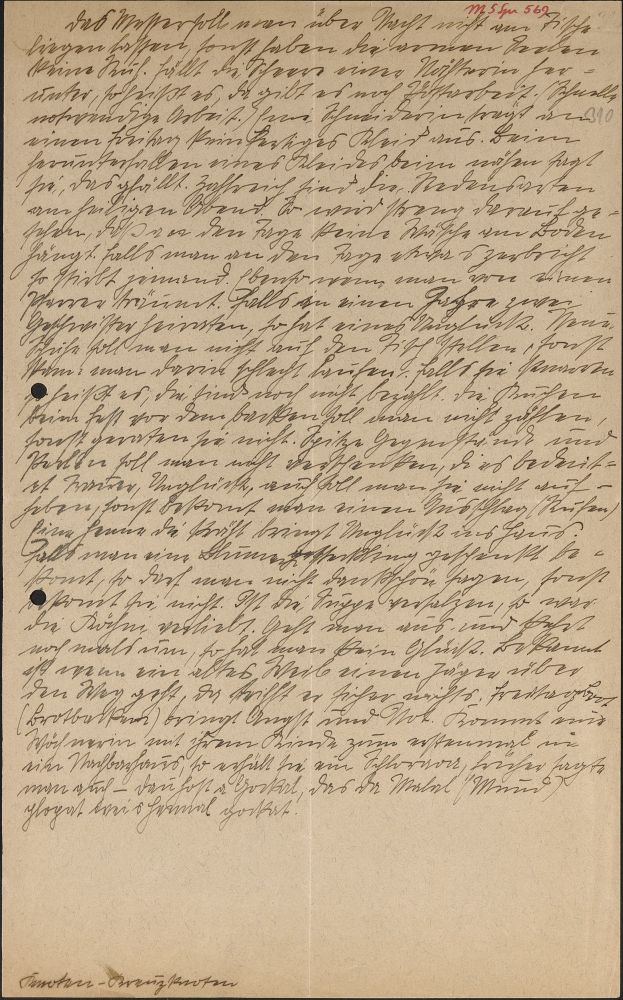 M S Gu 569
310
Das Messer soll man über Nacht nicht am Tische
liegen lassen, sonst haben die armen Seelen
keine Ruh. Fällt die Scheere einer Nähterin her-
unter, so heißt es, da gibt es noch Arbeit. Schnelle
notwendige Arbeit. Eine Schneiderin tragt an
einen Freitag kein fertiges Kleid aus. Beim
herunterfallen eines Kleides beim nähen sagt
sie, das gfällt. Zahlreich sind die Redensarten
am heiligen Abend. So wird streng darauf ge-
sehen, daß an den Tage keine Wäsche am Boden
hängt. Falls man an den Tage etwas zerbricht
so stirbt jemand. Ebenso wenn man von einen
Pfarrer träumt. Falls in einen Jahre zwei
Geschwister heiraten, so hat eines Unglück. Neue
Schuhe soll man nicht auf den Tisch stellen, sonst
kann man darin schlecht laufen. Falls sie knarren
so heißt es, die sind noch nicht bezahlt. Die Kuchen
beim Fest vor dem backen soll man nicht zählen,
sonst geraten sie nicht. Spitze Gegenstände und
Perlen soll man nicht verschenken, die es bedeut-
et Trauer, Unglück, auch soll man sie nicht auf-
heben, sonst bekomt man einen Ausschlag (Rufen)
Eine Henne die kräht bringt Unglück ins Haus.
Falls man eine Blume geschenkt be-
komt, so darf man nicht dankschön sagen, sonst
bekomt sie nicht. Ist die Suppe versalzen, so war
die Köchin verliebt. Geht man aus und kehrt
noch mals um, so hat man kein Glück. Bekannt
ist wenn ein altes Weib einen Jäger über
den Weg geht, da trifft er sicher nichts. Freitagbrot
(Brotbacken) bringt Angst und Not. Kommt eine
Wöchnerin mit ihrem Kinde zum erstenmal in
ein Nachbarhaus, so erhält sie ein, früher sagte
man auch – dau host a Gockal, das da Malal (Mund)
glogat wei s Henal gockat.
Knoten – Kreuzknoten